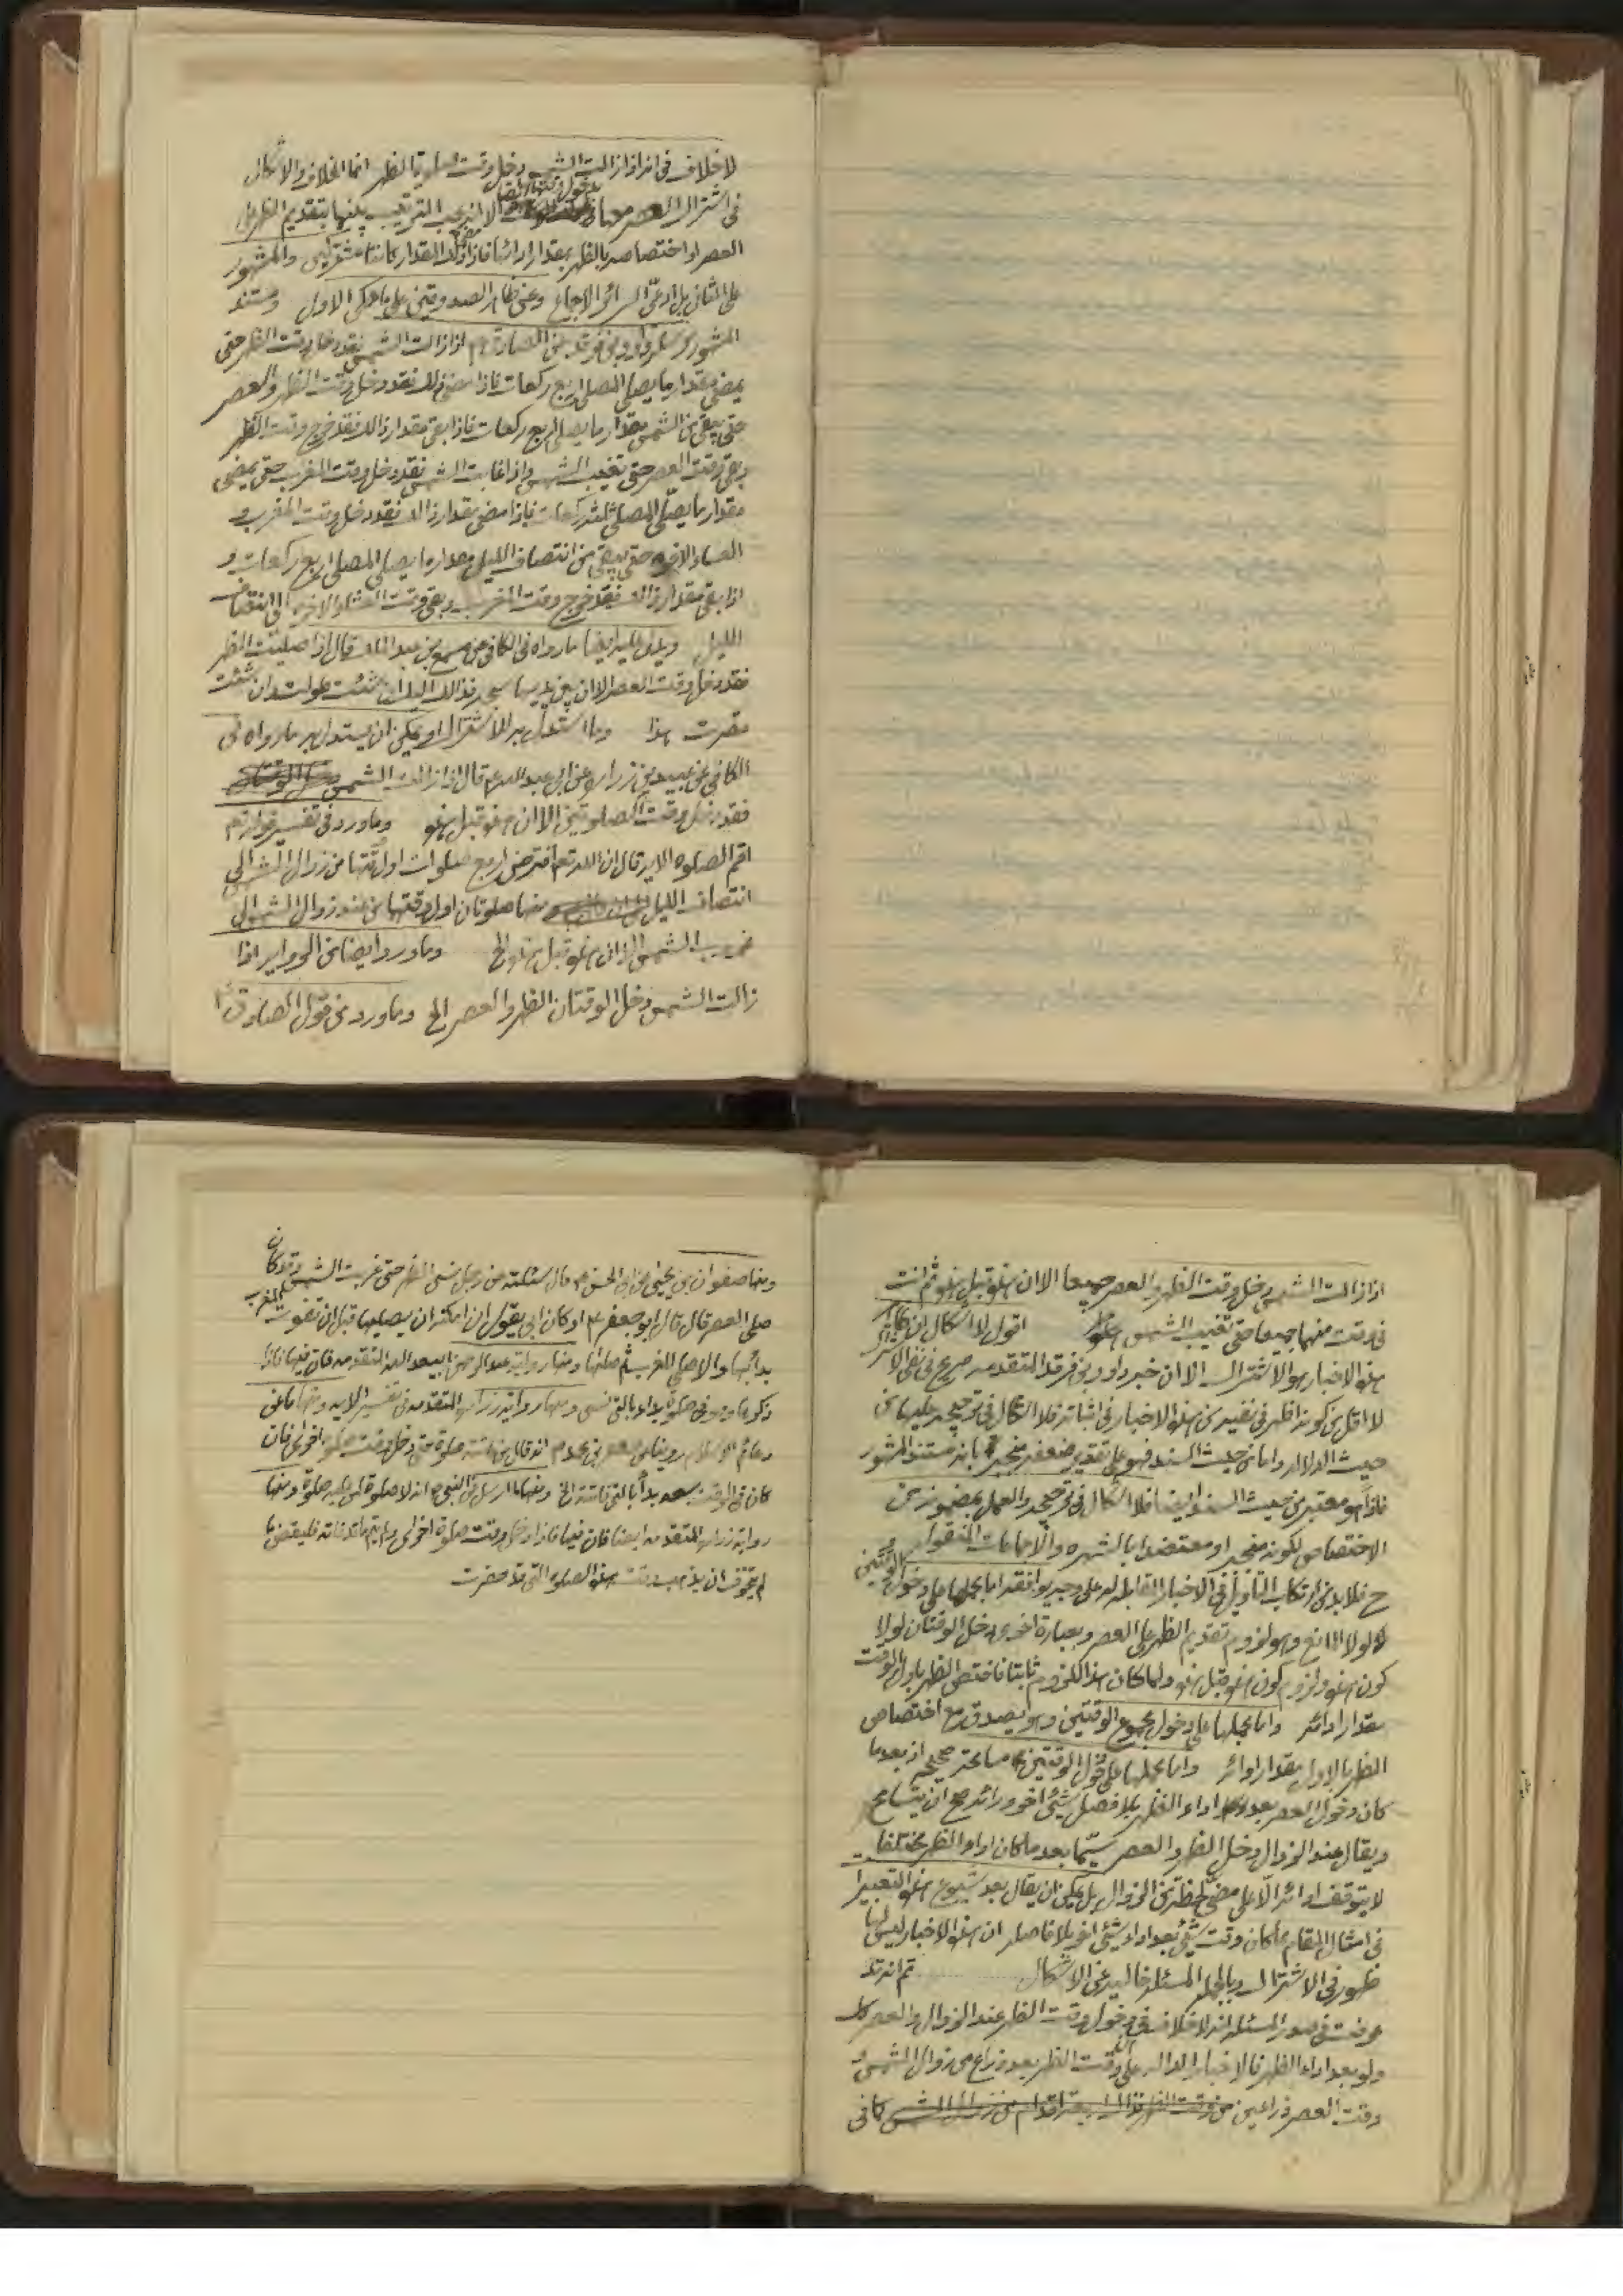 لا خلاف فى انه اذا زالت الشمس دخل وقت صلوة الظهر انما الخلاف والاشكال
فى اشتراك العصر معها بدخول وقتهما الا انه يجب الترتيب بينهما بتقديم الظهر على
العصر او اختصاصه بالظهر بمقدار ادائها فاذا مضى ذلك المقدار كانتا مشتركتين والمشهور
على الثانى بل ادعى السرائر الاجماع وعن ظاهر الصدوقين على ما حكى الاول ومستند
المشهور مرسلة داود بن فرقد عن الصادق ع م اذا زالت الشمس فقد دخل وقت الظهر حتى
يمضى مقدار ما يصلى المصلى اربع ركعات فاذا مضى ذلك فقد دخل وقت الظهر والعصر
حتى يبقى من الشمس مقدار ما يصلى اربع ركعات فاذا بقى مقدار ذالك فقد خرج وقت الظهر
وبقى وقت العصر حتى تغيب الشمس واذا غابت الشمس فقد دخل وقت المغرب حتى يمضى
مقدار ما يصلى المصلى ثلث ركعات فاذا مضى مقدار ذالك فقد دخل وقت المغرب و
العشاء الاخره حتى يبقى من انتصاف الليل مقدار ما يصلى المصلى اربع ركعات و
اذا بقى مقدار ذالك فقد خرج وقت المغرب وبقى وقت العشاء الاخره الى انتصاف
الليل ويدل عليه ايضا ما رواه فى الكافى عن مسمع بن عبد الملك قال اذا صليت الظهر
فقد دخل وقت العصر الا ان بين يديها سبحه فذالك اليك ان شئت طولت وان شئت
قصرت هذا وما استدل به للاشتراك او يمكن ان يستدل به ما رواه فى
الكافى عن عبيد بن زراره عن ابى عبد الله ع قال اذا زالت الشمس
فقد دخل وقت الصلوتين الا ان هذه قبل هذه وما ورد فى تفسير قوله تعم
اقم الصلوه الايه قال ان الله تعم افترض اربع صلوات اول وقتها من زوال الشمس الى
انتصاف الليل منها صلوتان اول وقتهما من عند زوال الشمس الى
غروب الشمس الا ان هذه قبل هذه الخ وما ورد ايضا من الروايه اذا
زالت الشمس دخل الوقتان الظهر والعصر الخ وما ورد من قول الصادق ع
اذا زالت الشمس دخل وقت الظهر والعصر جميعا الا ان هذه قبل هذه ثم انت
فى وقت منهما جميعا حتى تغيب الشمس اقول لا اشكال ان ظاهر
هذه الاخبار هو الاشتراك الا ان خبر داود بن فرقد المتقدمه صريح فى نفى الاشتراك
لا اقل من كونه اظهر فى نفيه من هذه الاخبار فى اثباته فلا اشكال فى ترجيحه عليها من
حيث الدلاله واما من حيث السند فهو على تقدير ضعفه منجبر بانه مستند المشهور
فاذا هو معتبر من حيث السند ايضا فلا اشكال فى ترجيحه والعمل بمضمونه من
الاختصاص لكونه منجبر او معتضدا بالشهره والاجماعات المنقوله و
ح فلا بد من ارتكاب التأويل فى الاخبار المقابله له على وجه يوافقه اما بحملها على دخول الوقتين
لولا المانع وهو لزوم تقديم الظهر على العصر وبعبارة اخرى دخل الوقتان لولا
كون هذه ولزوم كون هذه قبل هذه ولما كان هذا اللزوم ثابتا فاختص الظهر باول الوقت
بمقدار ادائه واما بحملها على دخول مجموع الوقتين وهو يصدق مع اختصاص
الظهر بالاول بمقدار ادائه واما بحملها على دخول الوقتين مسامحة صحيحه اذ بعد ما
كان دخول العصر بعد اداء الظهر بلا فصل شئ اخر ورائه صح ان يتسامح
ويقال عند الزوال دخل الظهر والعصر سيما بعد ما كان اداء الظهر مختلفا
لا يتوقف ادائه الا على مضى لحظة من الزوال بل يمكن ان يقال بعد شيوع هذه التعبير
فى امثال المقام مما كان وقت شئ بعد اداء شئ اخر بلا فاصله ان هذه الاخبار ليس لها
ظهور فى الاشتراك وبالجمله المسئله خاليه عن الاشكال ثم انه قد
عرفت فى صدر المسئله انه لا خلاف فى دخول وقت الظهر عند الزوال والعصر
ولو بعد اداء الظهر فالاخبار الداله على ان وقت الظهر بعد ذراع من زوال الشمس و
وقت العصر ذراعين من وقت الظهر فذالك اربعة اقدام من زوال الشمس كما فى
ومنها صفوان بن يحيى عن ابى الحسن ع قال سئلته عن رجل نسى الظهر حتى غربت الشمس وقد كان
صلى العصر قال قال ابو جعفر ع او كان ابى يقول ان امكنه ان يصليها قبل ان تفوته المغرب
بدأ بها والا صلى المغرب ثم صلاها ومنها رواية عبد الرحمن بن ابيعبد الله المتقدمه فان فيها فاذا
ذكرها وهو فى صلوة بدأ بالتى نسى ومنها رواية زراره المتقدمه فى تفسير الايه ومنها ما عن
دعائم الاسلام روينا عن جعفر بن محمد ع انه قال من فاتته صلوة حتى دخل وقت صلوة اخرى فان
كان فى الوقت سعه بدأ بالتى فاتته الخ ومنها ما ارسل عن النبى ص انه لا صلوة لمن عليه صلوة ومنها
رواية زراره المتقدمه ايضا فان فيها فاذا دخل وقت صلوة اخرى ولم يتم ما قد فاته فليقض ما
لم يتخوف ان يذهب وقت هذه الصلوه التى قد حضرت